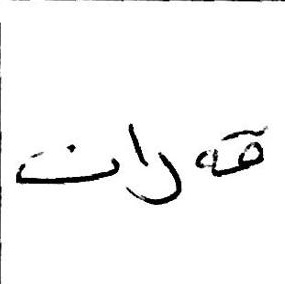 فەرات